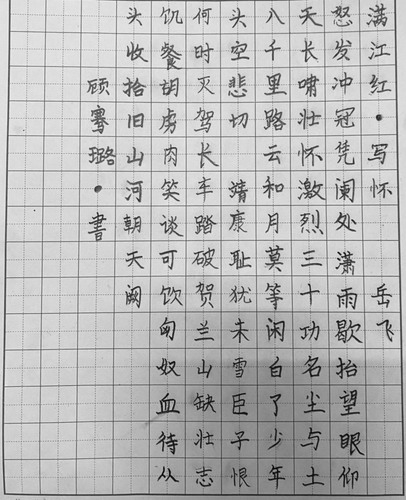 满江红•写怀 岳飞
怒发冲冠凭阑处潇雨歇抬望眼仰
天长啸壮怀激烈三十功名尘与土
八千里路云和月莫等闲白了少年
头空悲切 靖康耻犹未雪臣子恨
何时灭驾长车踏破贺兰山缺壮志
饥餐胡虏肉笑谈可饮匈奴血待从
头收拾旧山河朝天阙
顾骞璐•書